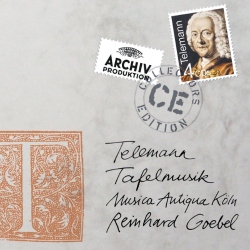 ARCHIV
PRODUKTION
Telemann
COLLECTORS
CE
EDITION
T
Telemann
Tafelmusik
Musica Antiqua Köln
Reinhard Goebel